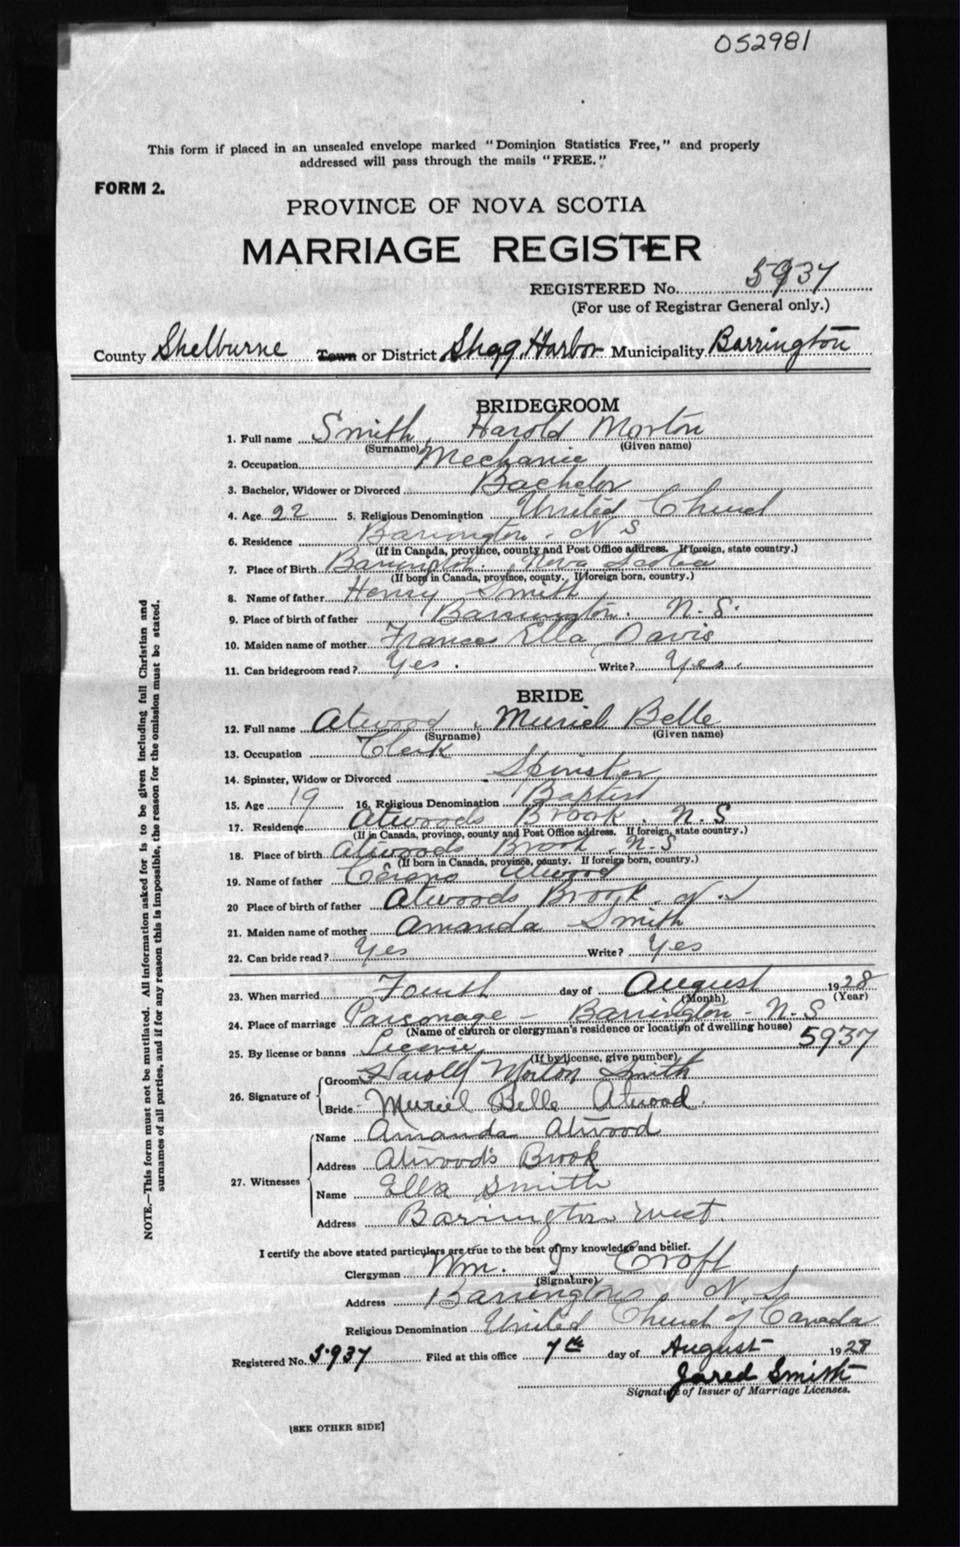 052981
This form if placed in an unsealed envelope marked "Dominion Statistics Free," and properly
addressed will pass through the mails "FREE."
FORM 2.
PROVINCE OF NOVA SCOTIA
MARRIAGE REGISTER
REGISTERED No. 5937
(For use of Registrar General only.)
County Shelburne Town or District Shag Harbor Municipality Barrington
BRIDEGROOM
1. Full name Smith, Harold Morton
(Surname) (Given name)
2. Occupation Mechanic
3. Bachelor, Widower or Divorced Bachelor
4. Age 22 5. Religious Denomination United Church
6. Residence Barrington, N S
(If in Canada, province, county and Post Office address. If foreign, state country.)
7. Place of Birth Barrington. Nova Scotia
(If born in Canada, province, county. If foreign born, country.)
8. Name of father Henry Smith
9. Place of birth of father Barrington. N.S.
10. Maiden name of mother Frances Ella Davis
11. Can bridegroom read? Yes. Write? Yes.
BRIDE
12. Full name Atwood, Muriel Belle
(Surname) (Given name)
13. Occupation Clerk
14. Spinster, Widow or Divorced Spinster
15. Age 19 16. Religious Denomination Baptist
17. Residence Atwoods Brook, N.S
(If in Canada, province, county and Post Office address. If foreign, state country.)
18. Place of birth Atwoods Brook, N.S
(If born in Canada, province, county. If foreign born, country.)
19. Name of father Atwood
20 Place of birth of father Atwoods Brook. N.S
21. Maiden name of mother Amanda Smith
22. Can bride read? Yes Write? Yes
23. When married Fourth day of August 1928
(Month) (Year)
24. Place of marriage Parsonage - Barrington - N.S
(Name of church or clergyman's residence or location of dwelling house)
25. By license or banns License 5937
(If by license, give number)
26. Signature of Groom Harold Morton Smith
Bride Muriel Belle Atwood.
27. Witnesses Name Amanda Atwood
Address Atwood's Brook
Name Ella Smith
Address Barrington West.
I certify the above stated particulars are true to the best of my knowledge and belief.
Clergyman Wm. J Croft
(Signature)
Address Barrington, N.S
Religious Denomination United Church of Canada
Registered No. 5937 Filed at this office 7th day of August 1928
Jared Smith
Signature of Issuer of Marriage Licenses.
[SEE OTHER SIDE]
NOTE.—This form must not be mutilated. All information asked for is to be given including full Christian and
surnames of all parties, and if for any reason this is impossible, the reason for the omission must be stated.